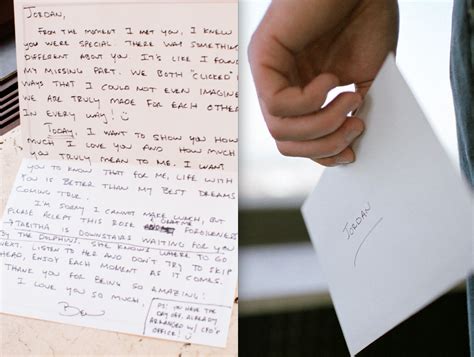 JORDAN,
FROM THE MOMENT I MET YOU, I KNEW
YOU WERE SPECIAL. THERE WAS SOMETHING
DIFFERENT ABOUT YOU. IT'S LIKE I FOUND
MY MISSING PART. WE BOTH "CLICKED"
WAYS THAT I COULD NOT EVEN IMAGINE
WE ARE TRULY MADE FOR EACH OTHER
IN EVERY WAY! :)
TODAY, I WANT TO SHOW YOU HOW
MUCH I LOVE YOU AND HOW MUCH
YOU TRULY MEAN TO ME. I WANT
YOU TO KNOW THAT FOR ME, LIFE WITH
YOU IS BETTER THAN MY BEST DREAMS
COMING TRUE.
I'M SORRY I CANNOT MAKE LUNCH, BUT
PLEASE ACCEPT THIS ROSE & FORGIVENESS
→ TABITHA IS DOWNSTAIRS WAITING FOR YOU
BY THE DOLPHINS. SHE KNOWS WHERE TO GO
NEXT. LISTEN TO HER AND DON'T TRY TO SKIP
AHEAD, ENJOY EACH MOMENT AS IT COMES.
THANK YOU FOR BEING SO AMAZING!
I LOVE YOU SO MUCH,
BEN
PS: YOU HAVE THE
DAY OFF. ALREADY
ARRANGED W/ CFO'S
OFFICE!
JORDAN